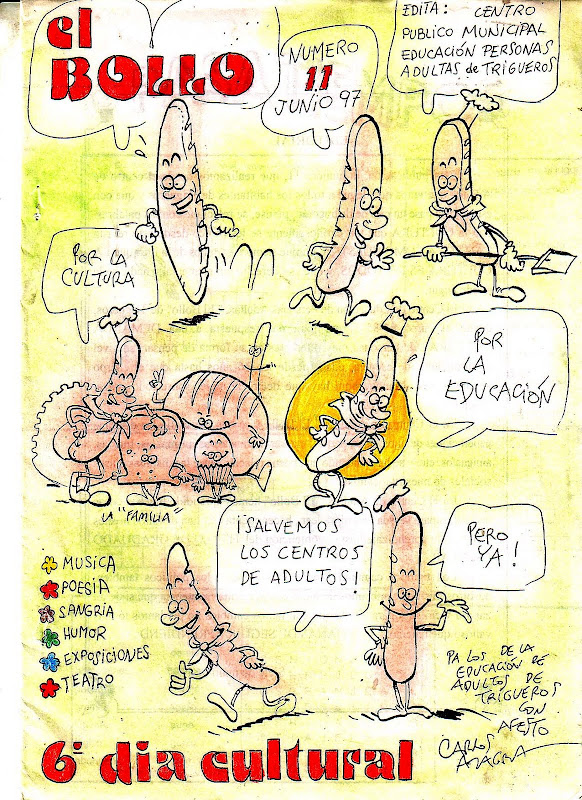 el
BOLLO
NUMERO
11
JUNIO 97
EDITA: CENTRO
PUBLICO MUNICIPAL
EDUCACIÓN PERSONAS
ADULTAS de TRIGUEROS
POR LA
CULTURA
POR
LA
EDUCACIÓN
LA "FAMILIA"
¡SALVEMOS
LOS CENTROS
DE ADULTOS!
PERO
YA!
MUSICA
POESIA
SANGRIA
HUMOR
EXPOSICIONES
TEATRO
PA LOS DE LA
EDUCACIÓN DE
ADULTOS DE
TRIGUEROS
CON
AFESTO
CARLOS
6º dia cultural